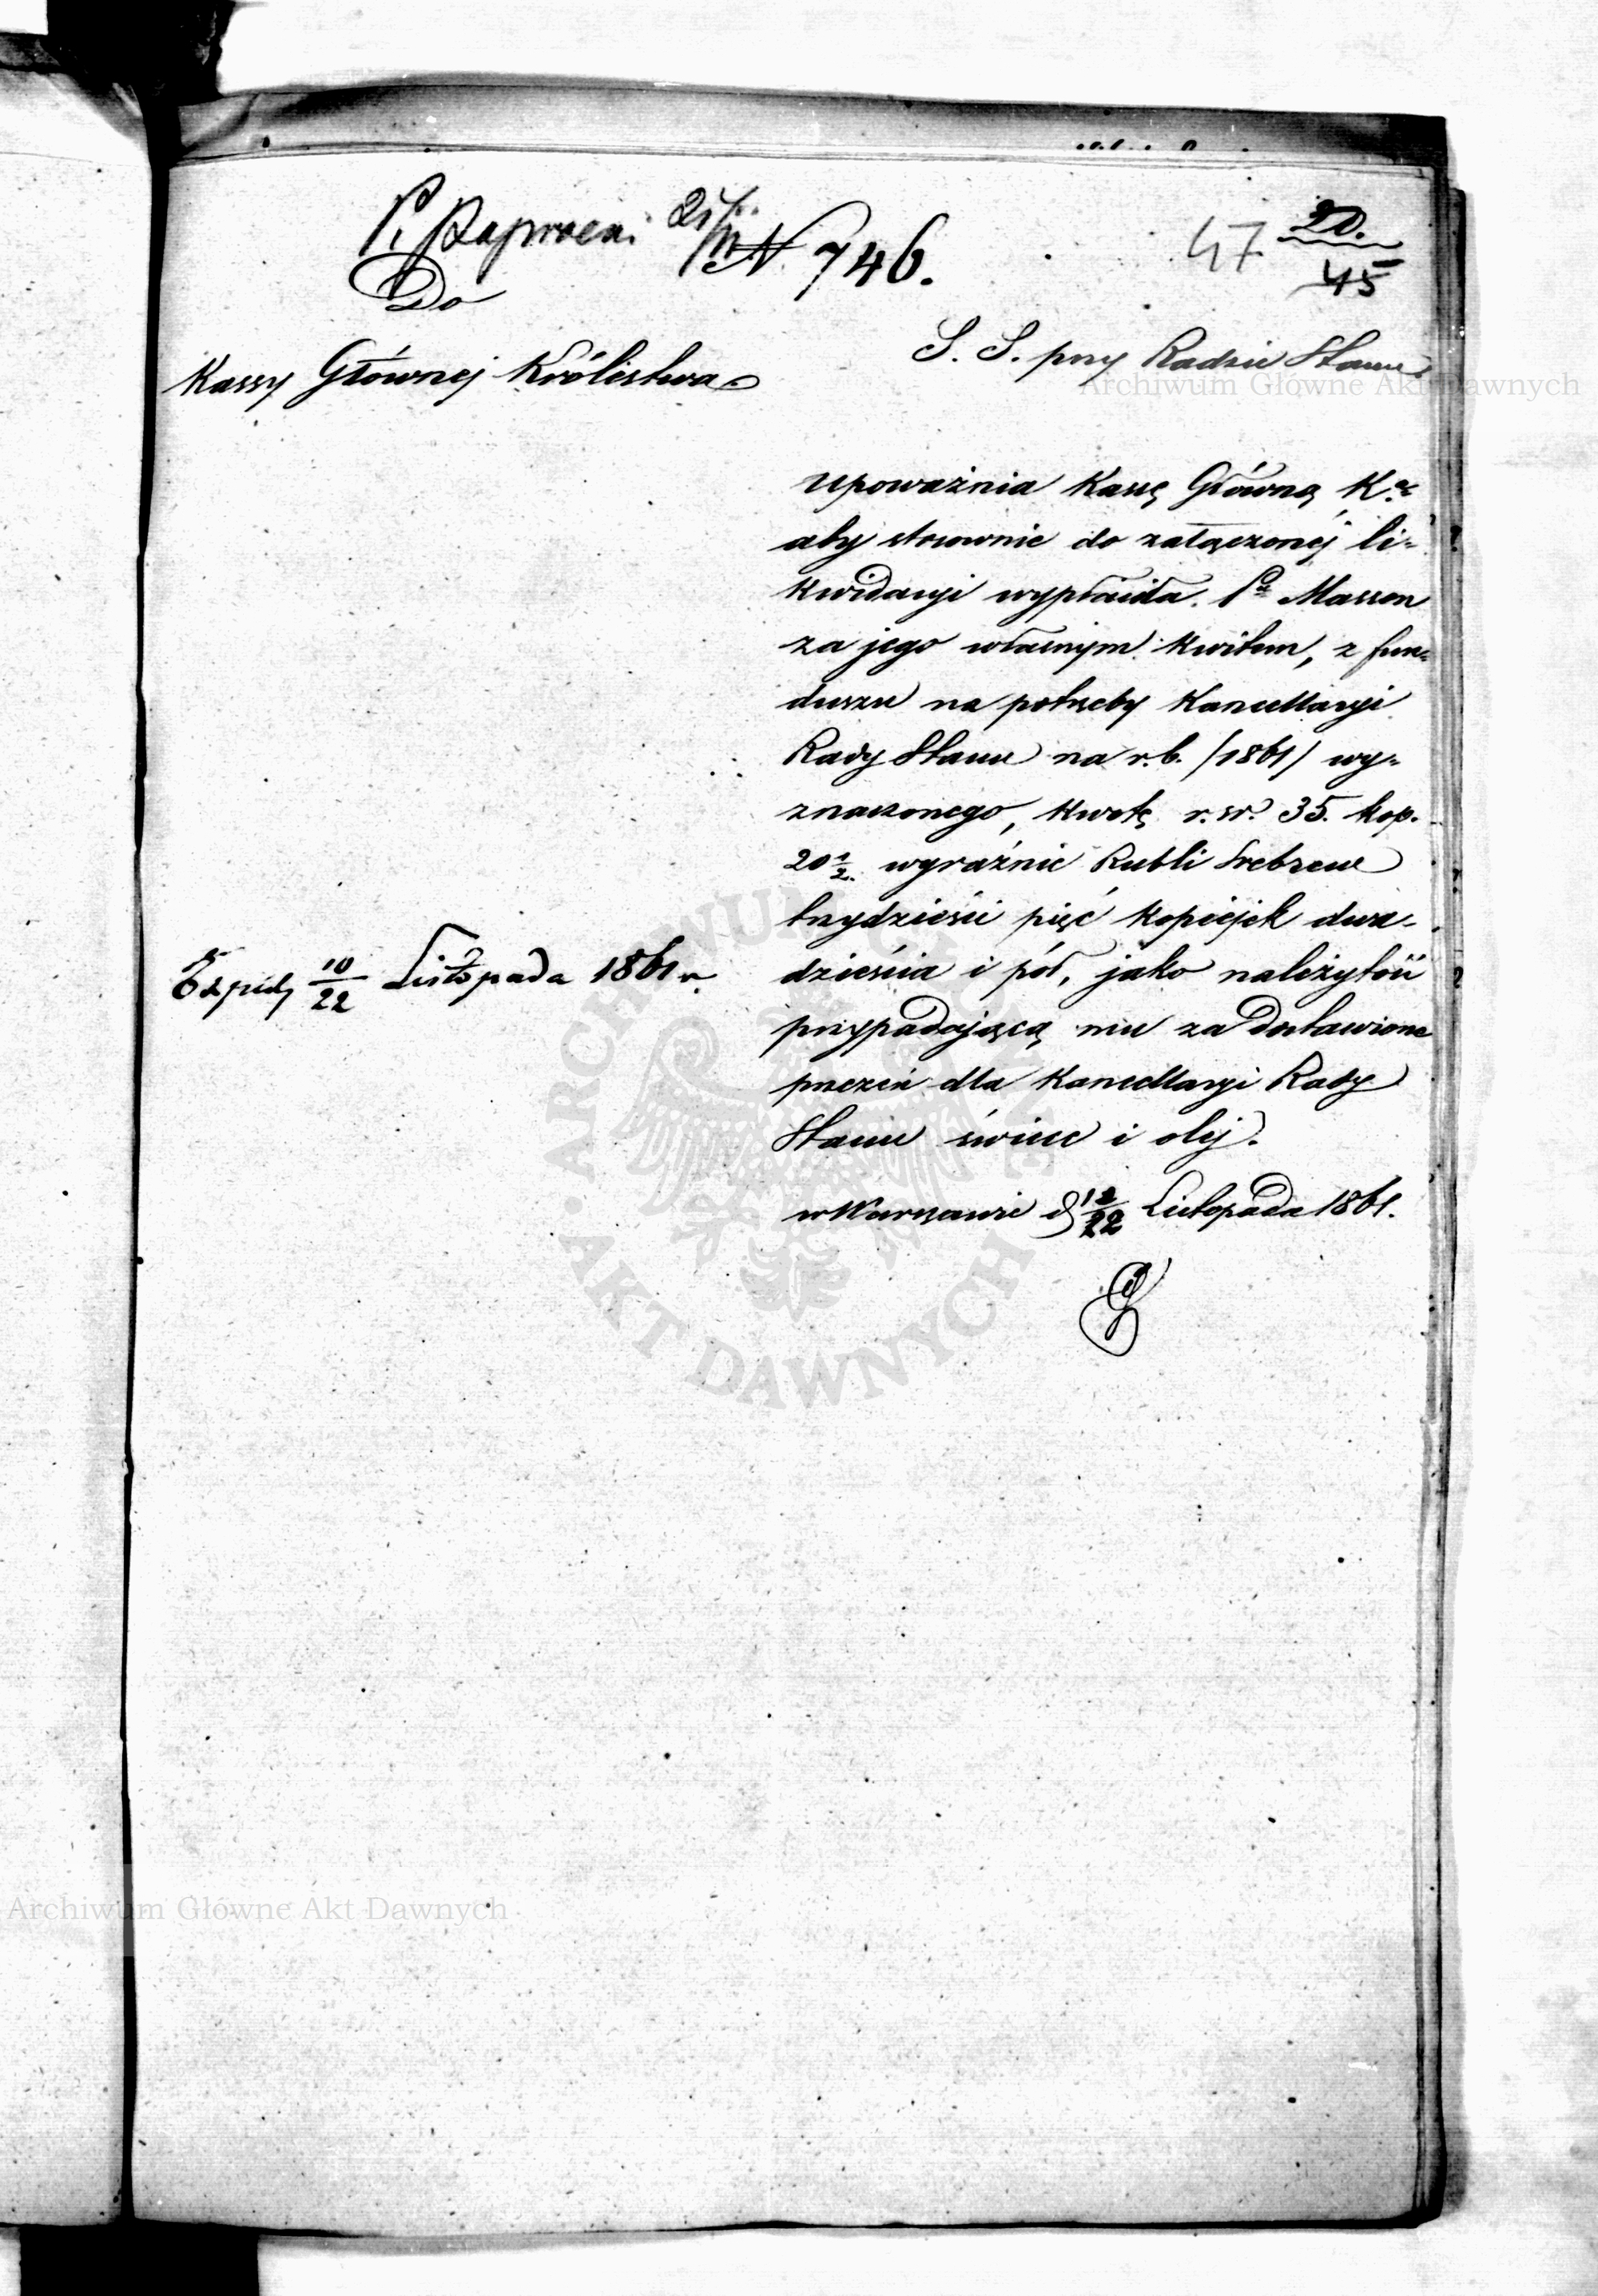 P. Paprocki 21/11 N 746.
47 20.
45
Do
Kassy Głównej Królestwa
S. S. przy Radzie Stanu
Upoważnia Kassę Główną K.
aby stosownie do załączonej li-
kwidacyi wypłaciła Pu Masson
za jego własnym kwitem, z fun-
duszu na potrzeby Kancellaryi
Rady Stanu na r.b. /1861/ wy-
znaczonego, kwotę r. sr. 35. kop.
20 1/2. wyraźnie Rubli Srebrem
trzydzieści pięć kopiejek dwa-
dzieścia i pół, jako należytość
przypadającą mu za dostawione
przezeń dla Kancellaryi Rady
Stanu świece i olej.
w Warszawie d 12/22 Listopada 1861.
Exped, 10/22 Listopada 1861 r.
Archiwum Główne Akt Dawnych
ARCHIWUM GŁÓWNE AKT DAWNYCH
Archiwum Główne Akt Dawnych